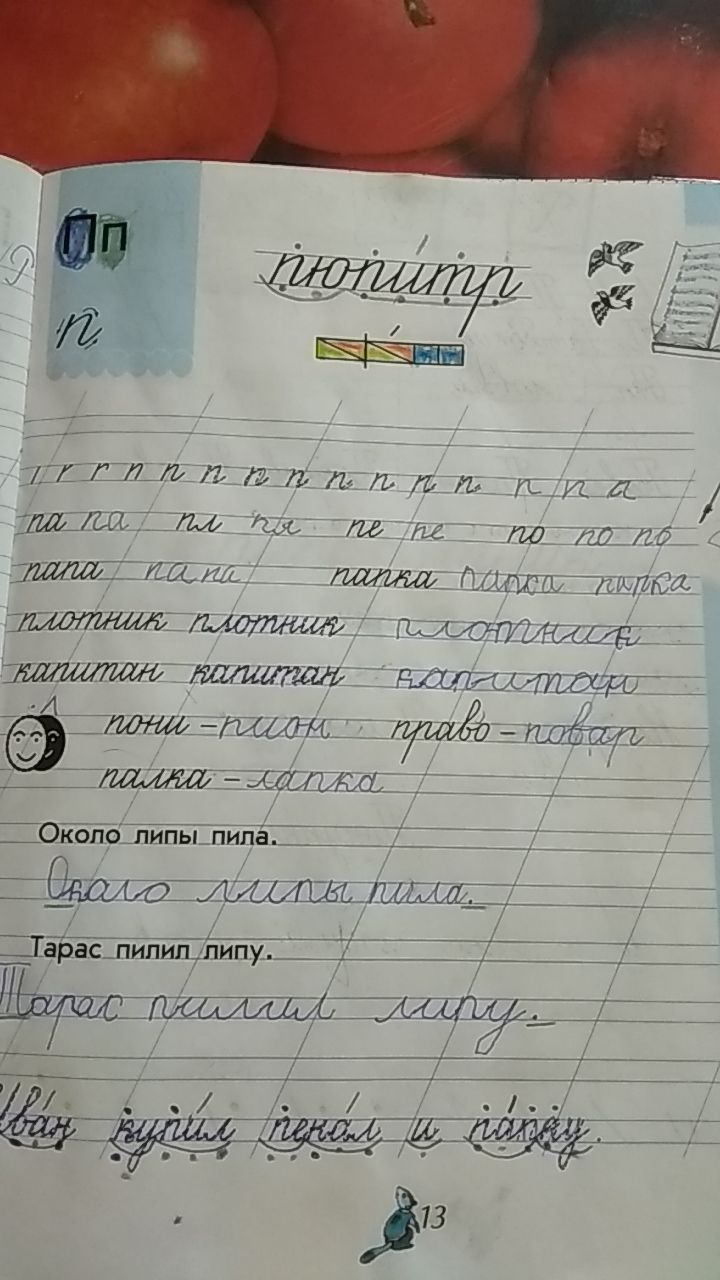 Пп
пюпи́тр
п
г г п п п п п п п п п п п а
па па пл пл пе пе по по по
папа папа папка папка папка
плотник плотник плотник
капитан капитан капитан
пони – пион право – повар
палка – лапка
Около липы пила.
Около липы пила.
Тарас пилил липу.
Тарас пилил липу.
Ива́н купи́л пена́л и па́пку.
13